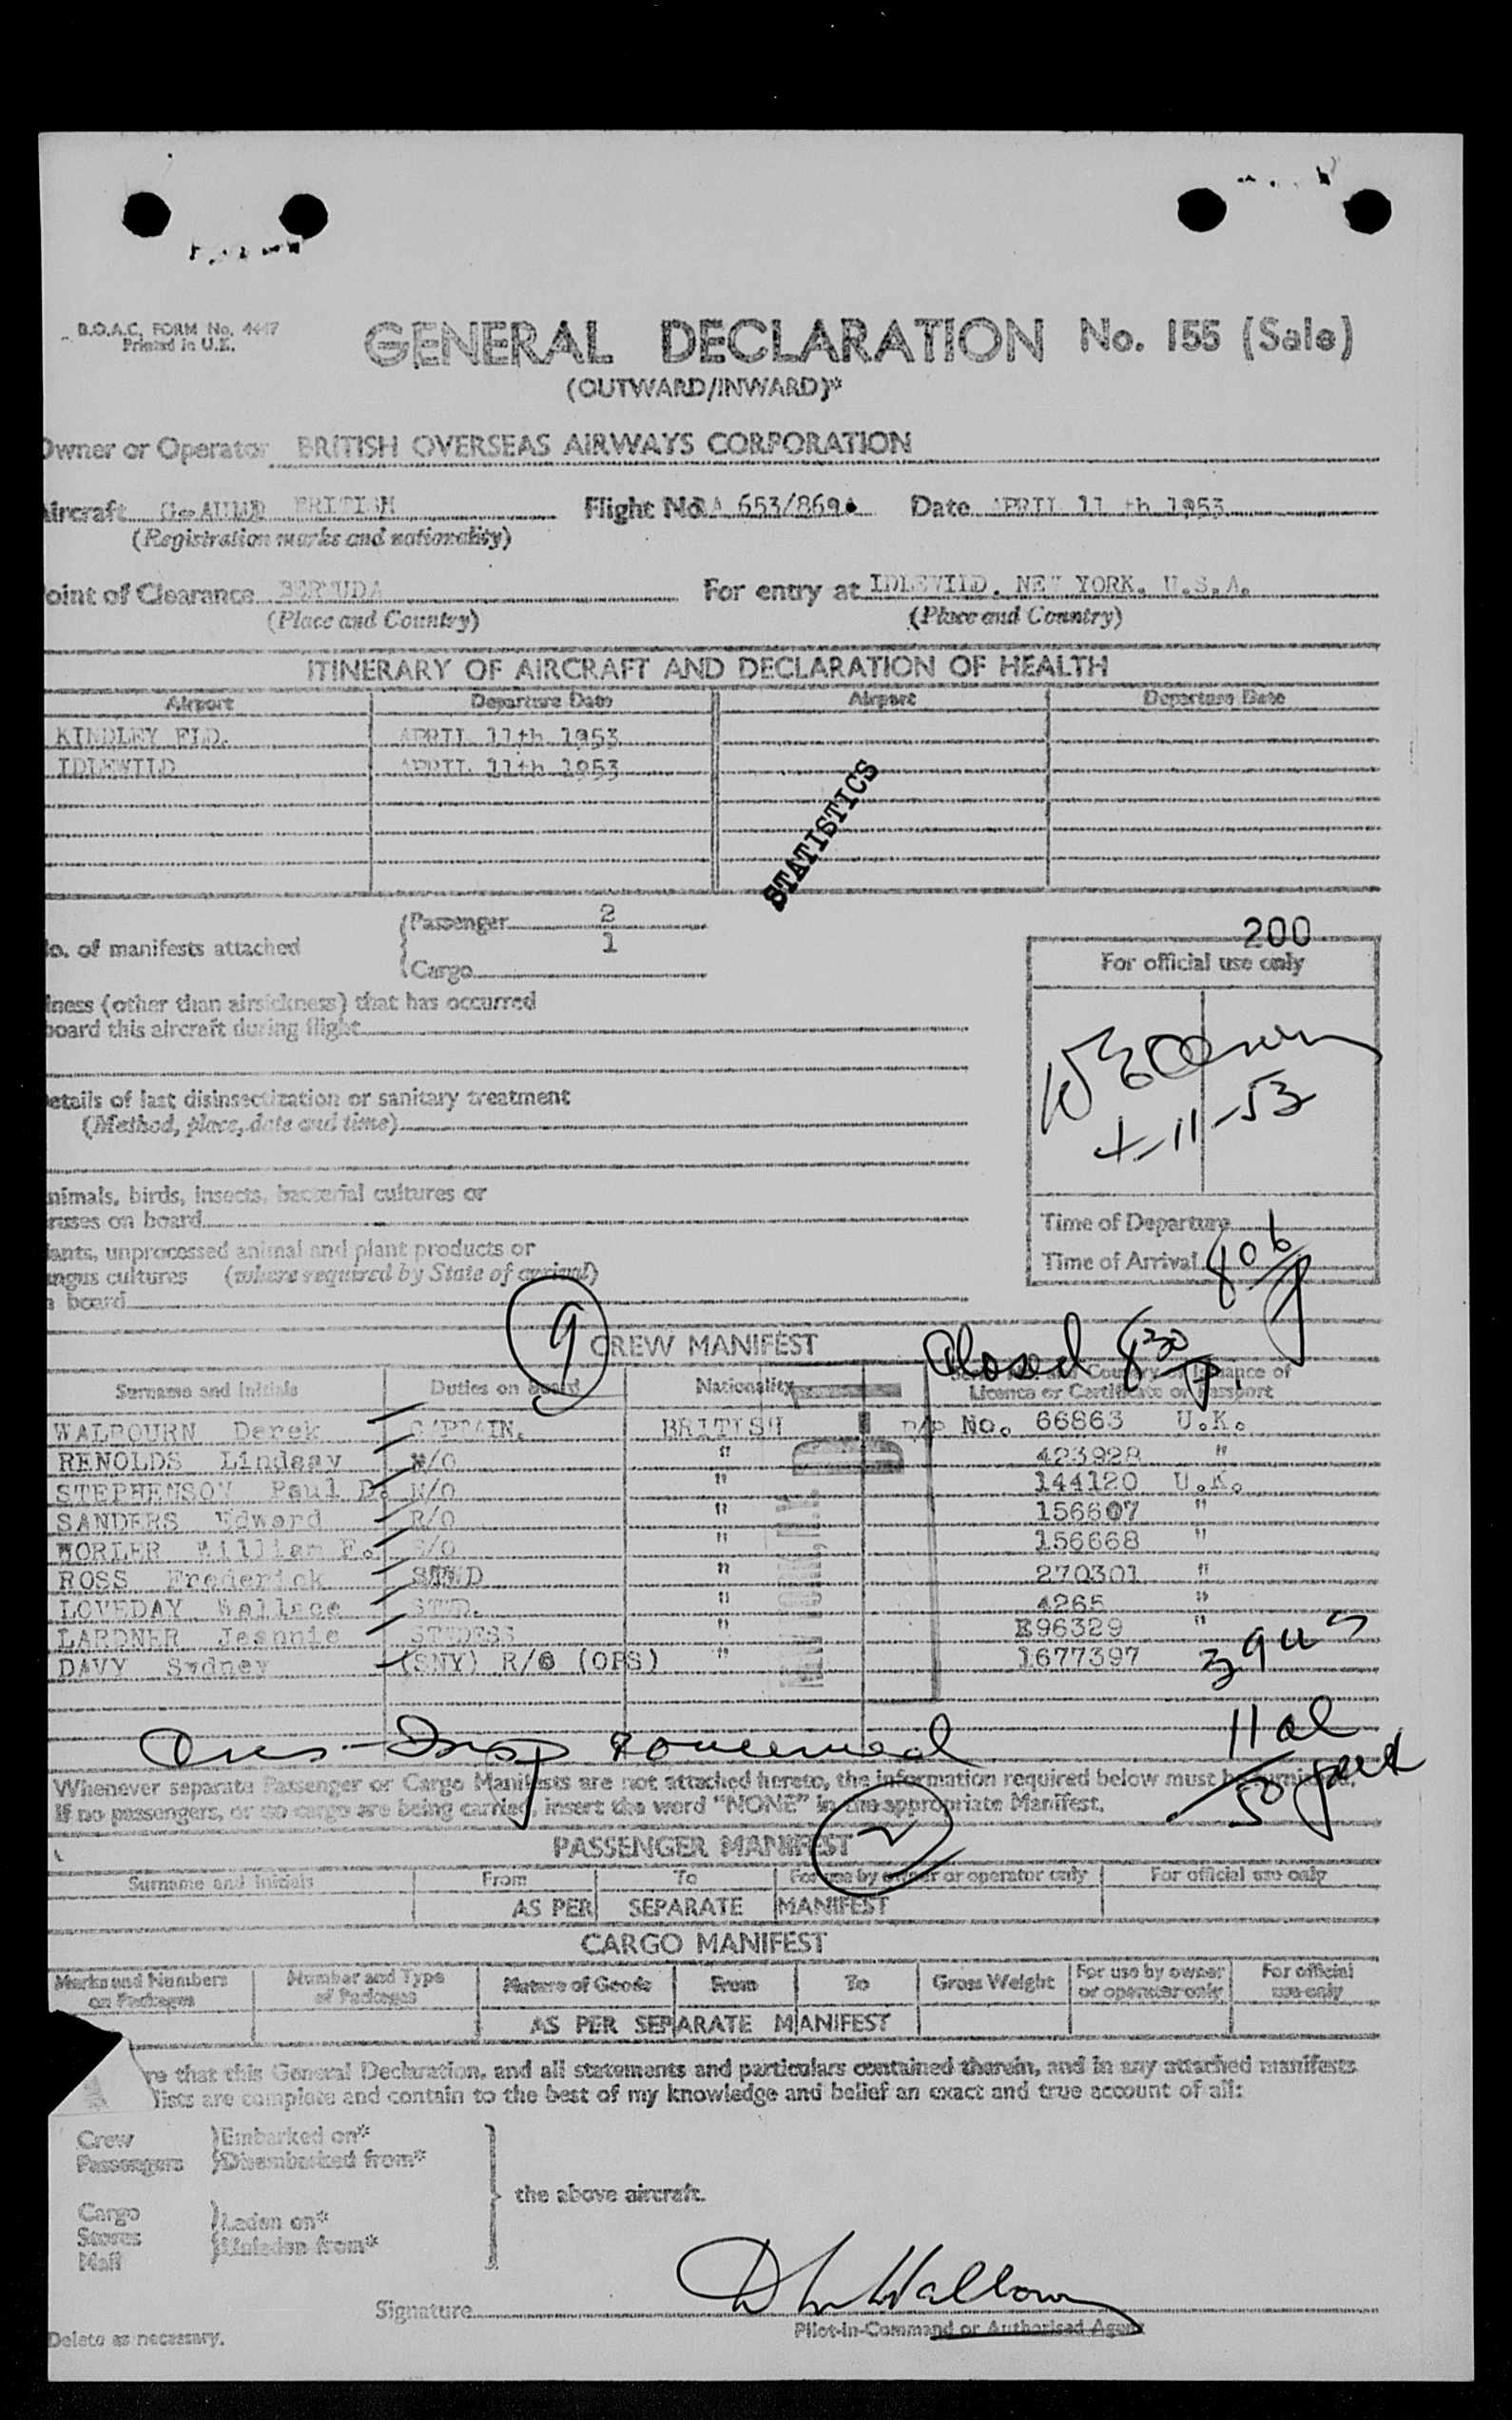 B.O.A.C. FORM No. 4447
Printed in U.K.
GENERAL DECLARATION No. 155 (Sale)
(OUTWARD/INWARD)*
Owner or Operator BRITISH OVERSEAS AIRWAYS CORPORATION
Aircraft BRITISH Flight No. 653/869 Date APRIL 11 th 1953
(Registration marks and nationality)
Point of Clearance BERMUDA For entry at IDLEWILD. NEW YORK. U.S.A.
(Place and Country) (Place and Country)
ITINERARY OF AIRCRAFT AND DECLARATION OF HEALTH
Airport Departure Date Airport Departure Date
KINDLEY FLD. APRIL 11th 1953
IDLEWILD APRIL 11th 1953
STATISTICS
No. of manifests attached
Passenger 2
1
Cargo
200
For official use only
4-11-53
Time of Departure
Time of Arrival 806
iness (other than airsickness) that has occurred
board this aircraft during flight
etails of last disinsectization or sanitary treatment
(Method, place, date and time)
nimals, birds, insects, bacterial cultures or
ruses on board
lants, unprocessed animal and plant products or
ungus cultures (where required by State of arrival)
n board
9
CREW MANIFEST
Closed 830
Surname and Initials Duties on Board Nationality Country of Issuance of
Licence or Certificate or Passport
WALBOURN Derek CAPTAIN. BRITISH P/P No. 66863 U.K.
RENOLDS Lindsay /O " 423928 "
STEPHENSON Paul D. N/O " 144120 U.K.
SANDERS Edward R/O " 156607 "
HORLER William F. /O " 156668 "
ROSS Frederick " 270301 "
LOVEDAY Wallace STWD. " 4265 "
LARDNER Jeannie STWDESS " E96329 "
DAVY Sydney (SNY) R/O (OPS) " 1677397
NEW YORK, N.Y.
Whenever separate Passenger or Cargo Manifests are not attached hereto, the information required below must be furnished.
If no passengers, or no cargo are being carried, insert the word "NONE" in the appropriate Manifest.
2
PASSENGER MANIFEST
Surname and Initials From To For use by owner or operator only For official use only
AS PER SEPARATE MANIFEST
CARGO MANIFEST
Marks and Numbers on Packages Number and Type of Packages Nature of Goods From To Gross Weight For use by owner or operator only For official use only
AS PER SEPARATE MANIFEST
re that this General Declaration, and all statements and particulars contained therein, and in any attached manifests
lists are complete and contain to the best of my knowledge and belief an exact and true account of all:
Crew Embarked on*
Passengers Disembarked from*
the above aircraft.
Cargo
Stores Laden on*
Mail Unladen from*
Signature
Pilot-in-Command or Authorised Agent
Delete as necessary.